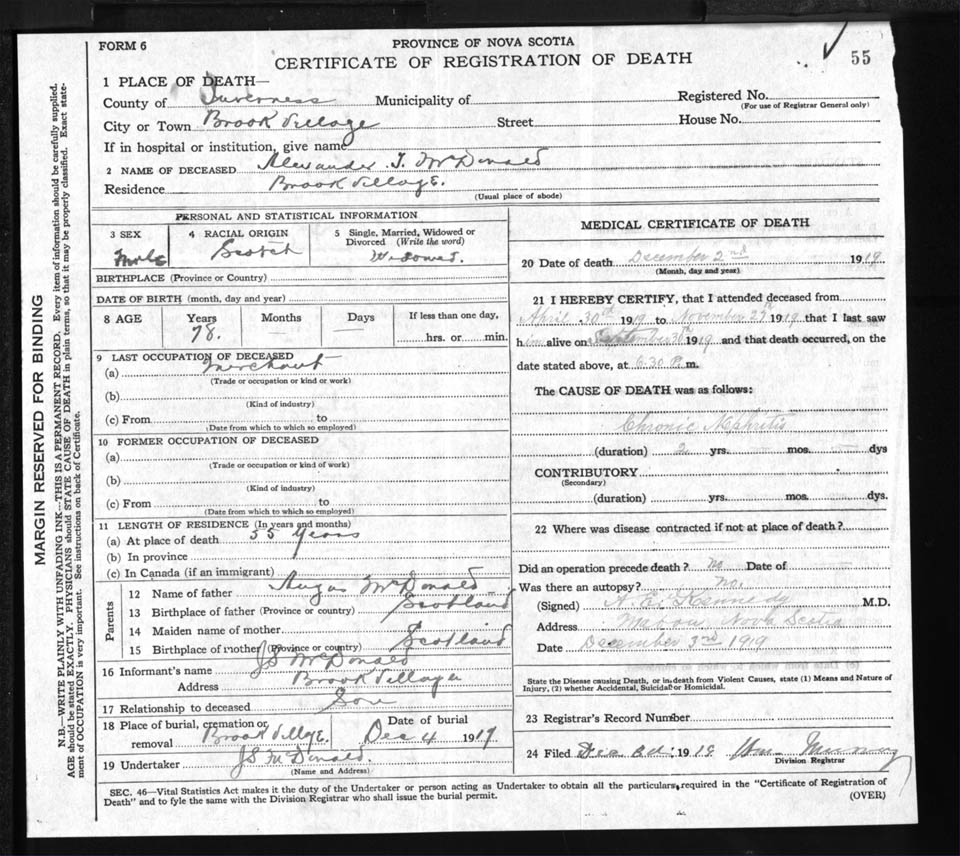 FORM 6
PROVINCE OF NOVA SCOTIA
CERTIFICATE OF REGISTRATION OF DEATH
55
1 PLACE OF DEATH—
County of Inverness Municipality of
Registered No.
(For use of Registrar General only)
City or Town Brook Village Street House No.
If in hospital or institution, give name
2 NAME OF DECEASED Alexander J. McDonald
Residence Brook Village.
(Usual place of abode)
PERSONAL AND STATISTICAL INFORMATION
3 SEX 4 RACIAL ORIGIN 5 Single, Married, Widowed or
Divorced (Write the word)
Male Scotch Widowed.
BIRTHPLACE (Province or Country)
DATE OF BIRTH (month, day and year)
8 AGE Years Months Days If less than one day,
78. — — hrs. or min.
9 LAST OCCUPATION OF DECEASED
(a) Merchant
(Trade or occupation or kind or work)
(b)
(Kind of industry)
(c) From to
(Date from which to which so employed)
10 FORMER OCCUPATION OF DECEASED
(a)
(Trade or occupation or kind of work)
(b)
(Kind of industry)
(c) From to
(Date from which to which so employed)
11 LENGTH OF RESIDENCE (In years and months)
(a) At place of death 55 Years
(b) In province
(c) In Canada (if an immigrant)
Parents
12 Name of father Angus McDonald
13 Birthplace of father (Province or country) Scotland
14 Maiden name of mother
15 Birthplace of mother (Province or country) Scotland
16 Informant's name JS McDonald
Address Brook Village
17 Relationship to deceased Son
18 Place of burial, cremation or Date of burial
removal Brook Village. Dec 4 1919
19 Undertaker JS McDonald.
(Name and Address)
MEDICAL CERTIFICATE OF DEATH
20 Date of death December 2nd 1919
(Month, day and year)
21 I HEREBY CERTIFY, that I attended deceased from
April 30 1919 to November 27th 1919 that I last saw
him alive on 1919 and that death occurred, on the
date stated above, at 6.30 P.m.
The CAUSE OF DEATH was as follows:
Chronic Nephritis
(duration) 2 yrs. mos. dys
CONTRIBUTORY
(Secondary)
(duration) yrs. mos. dys.
22 Where was disease contracted if not at place of death?
Did an operation precede death? no Date of
Was there an autopsy? no.
(Signed) A. E. Kennedy M.D.
Address Mabou, Nova Scotia
Date December 3rd 1919
State the Disease causing Death, or in death from Violent Causes, state (1) Means and Nature of
Injury, (2) whether Accidental, Suicidal or Homicidal.
23 Registrar's Record Number
24 Filed Dec 1919 Wm
Division Registrar
SEC. 46—Vital Statistics Act makes it the duty of the Undertaker or person acting as Undertaker to obtain all the particulars required in the "Certificate of Registration of
Death" and to fyle the same with the Division Registrar who shall issue the burial permit.
(OVER)
MARGIN RESERVED FOR BINDING
N.B.—WRITE PLAINLY WITH UNFADING INK—THIS IS A PERMANENT RECORD. Every item of information should be carefully supplied.
AGE should be stated EXACTLY. PHYSICIANS should STATE CAUSE OF DEATH in plain terms, so that it may be properly classified. Exact state-
ment of OCCUPATION is very important. See instructions on back of Certificate.